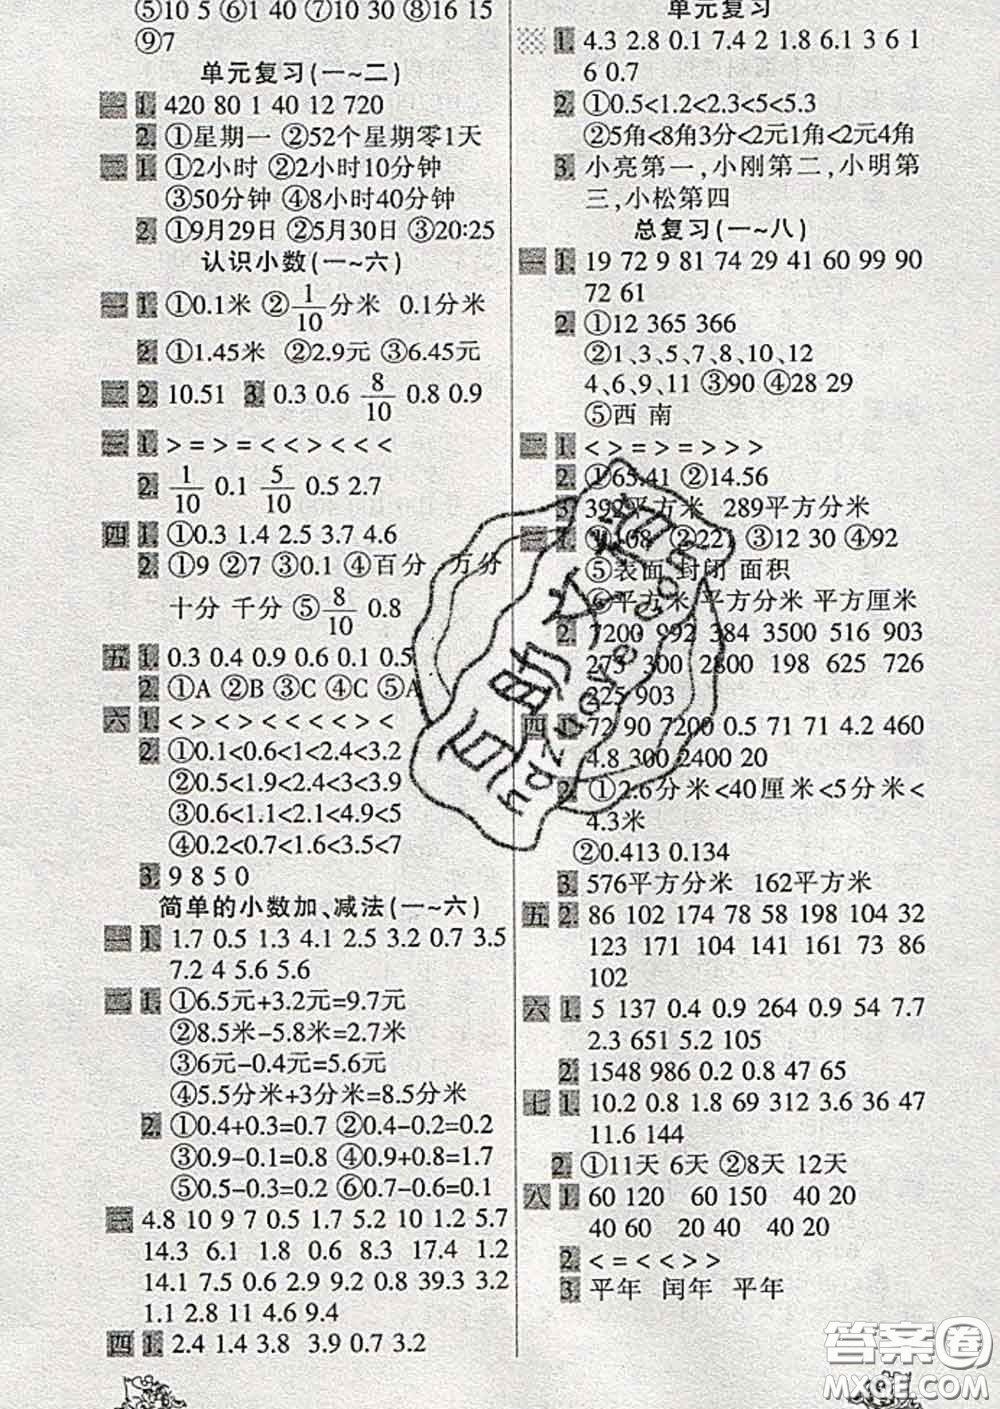 ⑤10 5 ⑥1 40 ⑦10 30 ⑧16 15
⑨7
单元复习(一~二)
一 1. 420 80 1 40 12 720
2. ①星期一 ②52个星期零1天
二 1. ①2小时 ②2小时10分钟
③50分钟 ④8小时40分钟
2. ①9月29日 ②5月30日 ③20:25
认识小数(一~六)
一 1. ①0.1米 ②1/10分米 0.1分米
2. ①1.45米 ②2.9元 ③6.45元
二 2. 10.51 3. 0.3 0.6 8/10 0.8 0.9
三 1. > = > = < < > < < <
2. 1/10 0.1 5/10 0.5 2.7
四 1. ①0.3 1.4 2.5 3.7 4.6
2. ①9 ②7 ③0.1 ④百分 万分
十分 千分 ⑤8/10 0.8
五 1. 0.3 0.4 0.9 0.6 0.1 0.5
2. ①A ②B ③C ④C ⑤A
六 1. < > < > < < < < > <
2. ①0.1<0.6<1<2.4<3.2
②0.5<1.2<1.9<2.4<3
③0.6<1.1<2.1<4.9<5
④0.2<0.7<1.6<3.5<7
3. 9 8 5 0
简单的小数加、减法(一~六)
一 1. 1.7 0.5 1.3 4.1 2.5 3.2 0.7 3.5
7.2 4 5.6 5.6
二 1. ①6.5元+3.2元=9.7元
②8.5米-5.8米=2.7米
③6元-0.4元=5.6元
④5.5分米+3分米=8.5分米
2. ①0.4+0.3=0.7 ②0.4-0.2=0.2
③0.9-0.1=0.8 ④0.9+0.8=1.7
⑤0.5-0.3=0.2 ⑥0.7-0.6=0.1
三 4.8 10 9 7 0.5 1.7 5.2 10 1.2 5.7
14.3 6.1 1.8 0.6 8.3 17.4 1.2
14.1 7.5 0.6 2.9 9.2 0.8 39.3 3.2
1.1 2.8 11 4.6 9.4
四 1. 2.4 1.4 3.8 3.9 0.7 3.2
单元复习
1. 4.3 2.8 0.1 7.4 2 1.8 6.1 3 6 1
6 0.7
2. ①0.5<1.2<2.3<5<5.3
②5角<8角3分<2元1角<2元4角
3. 小亮第一,小刚第二,小明第
三,小松第四
总复习(一~八)
一 1. 19 72 9 81 74 29 41 60 99 90
72 61
2. ①12 365 366
②1、3、5、7、8、10、12
4、6、9、11 ③90 ④28 29
⑤西 南
二 1. < > = > = > > >
2. ①65.41 ②14.56
3. 392平方米 289平方分米
三 1. ①108 ②221 ③12 30 ④92
⑤表面 封闭 面积
⑥平方米 平方分米 平方厘米
2. 7200 992 384 3500 516 903
273 300 2800 198 625 726
225 903
四 1. 72 90 7200 0.5 71 71 4.2 460
4.8 300 2400 20
2. ①2.6分米<40厘米<5分米<
4.3米
②0.413 0.134
3. 576平方分米 162平方米
五 2. 86 102 174 78 58 198 104 32
123 171 104 141 145 73 86
102
六 1. 5 137 0.4 0.9 264 0.9 54 7.7
2.3 651 5.2 105
2. 1548 986 0.2 0.8 47 65
七 1. 10.2 0.8 1.8 69 312 3.6 36 47
11.6 144
2. ①11天 6天 ②8天 12天
八 1. 60 120 60 150 40 20
40 60 20 40 40 20
2. < = < < > >
3. 平年 闰年 平年
百助文雅
hdzhuoye.com
答案圈
MXQE.COM